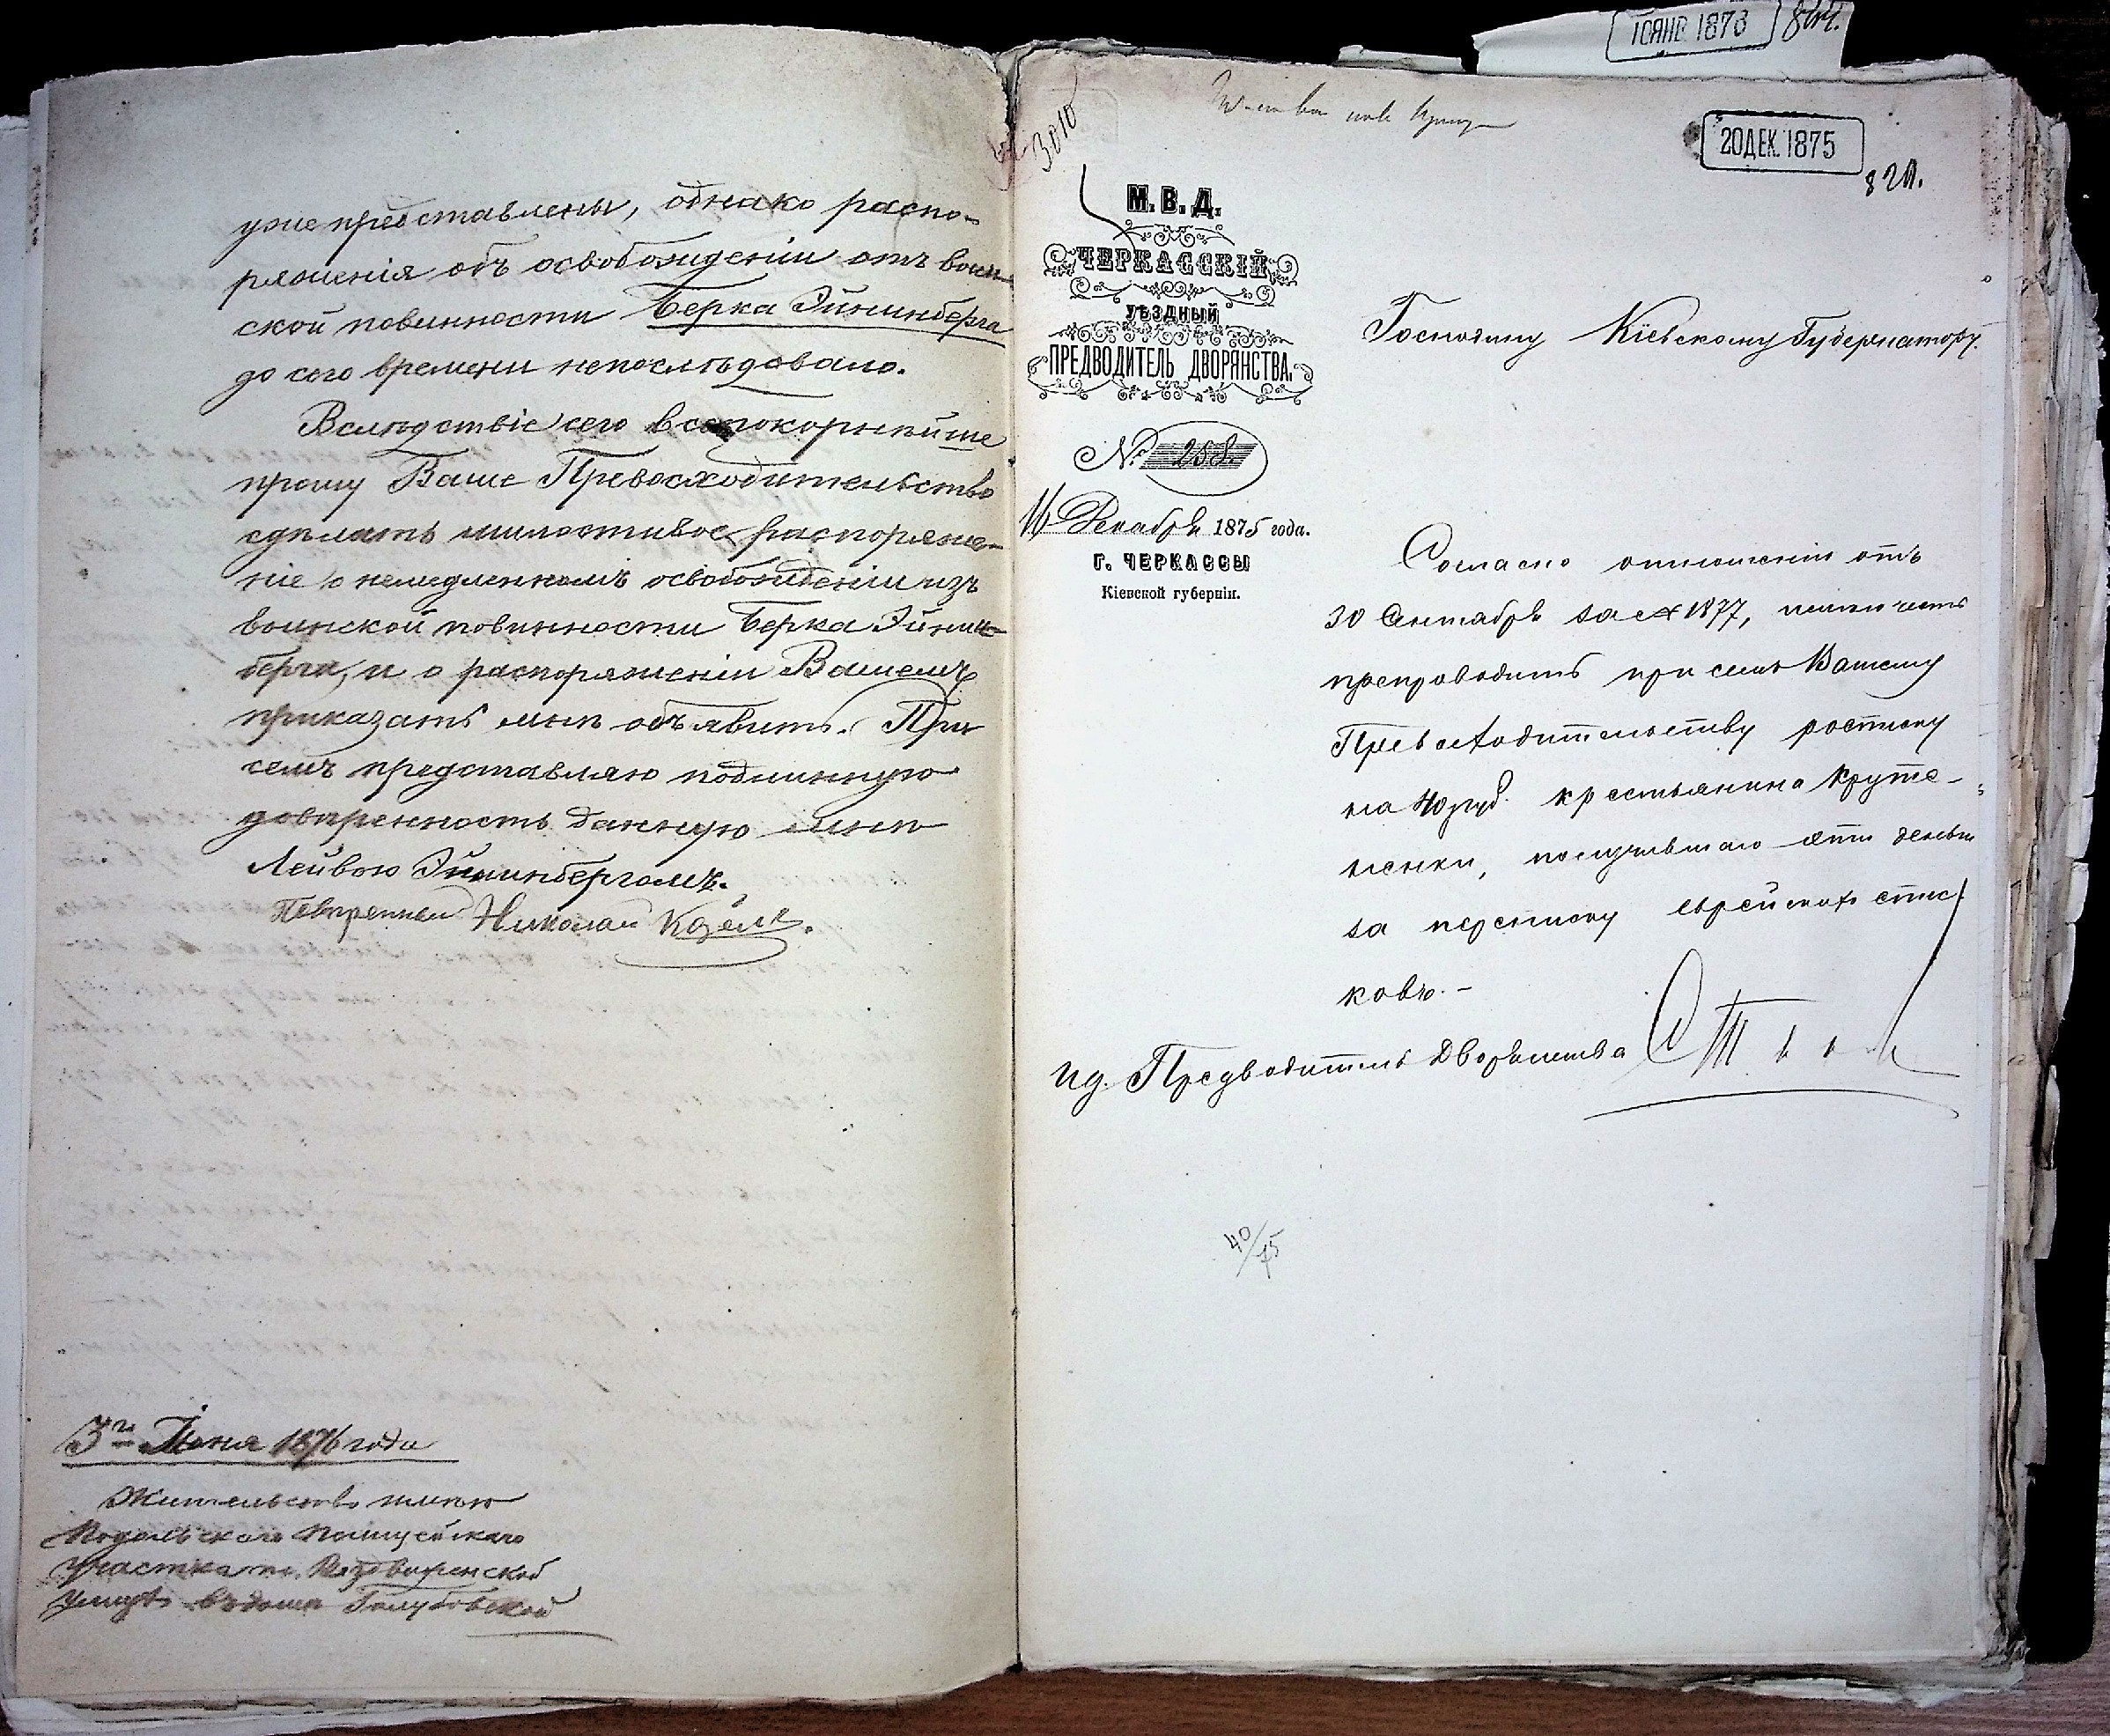 уже представлены, однако распо-
ряженія объ освобожденіи отъ воин-
ской повинности Берка Эйнинберга
до сего времени непослѣдовало.
Вслѣдствіе сего всепокорнѣйше
прошу Ваше Превосходительство
сдѣлать милостивое распоряже-
ніе о немедленномъ освобожденіи изъ
воинской повинности Берка Эйнин-
берга, и о распоряженіи Вашемъ
приказать мнѣ объявить. При
семъ представляю подлинную
довѣренность данную мнѣ
Лейбою Эйнинбергомъ.
Повѣренный Николай
3го Іюня 1876 года
Жительство имѣю
Подольскаго Полицейскаго
участка по Воздвиженской
улицѣ въ домѣ Голубовской
10 ЯНВ 1876
84.
3010
20 ДЕК. 1875
82.
М. В. Д.
ЧЕРКАССКІЙ
УѢЗДНЫЙ
ПРЕДВОДИТЕЛЬ ДВОРЯНСТВА.
№ 258.
16 Декабря 1875 года.
Г. ЧЕРКАССЫ
Кіевской губерніи.
Господину Кіевскому Губернатору.
Согласно отношенія отъ
30 Сентября за № 1877, имѣю честь
препроводить при семъ Вашему
Превосходительству росписку
на 40 руб. крестьянина Круте-
ленки, получившаго эти деньги
за переписку еврейскихъ спис-
ковъ.-
Ид. Предводитель Дворянства
40/75